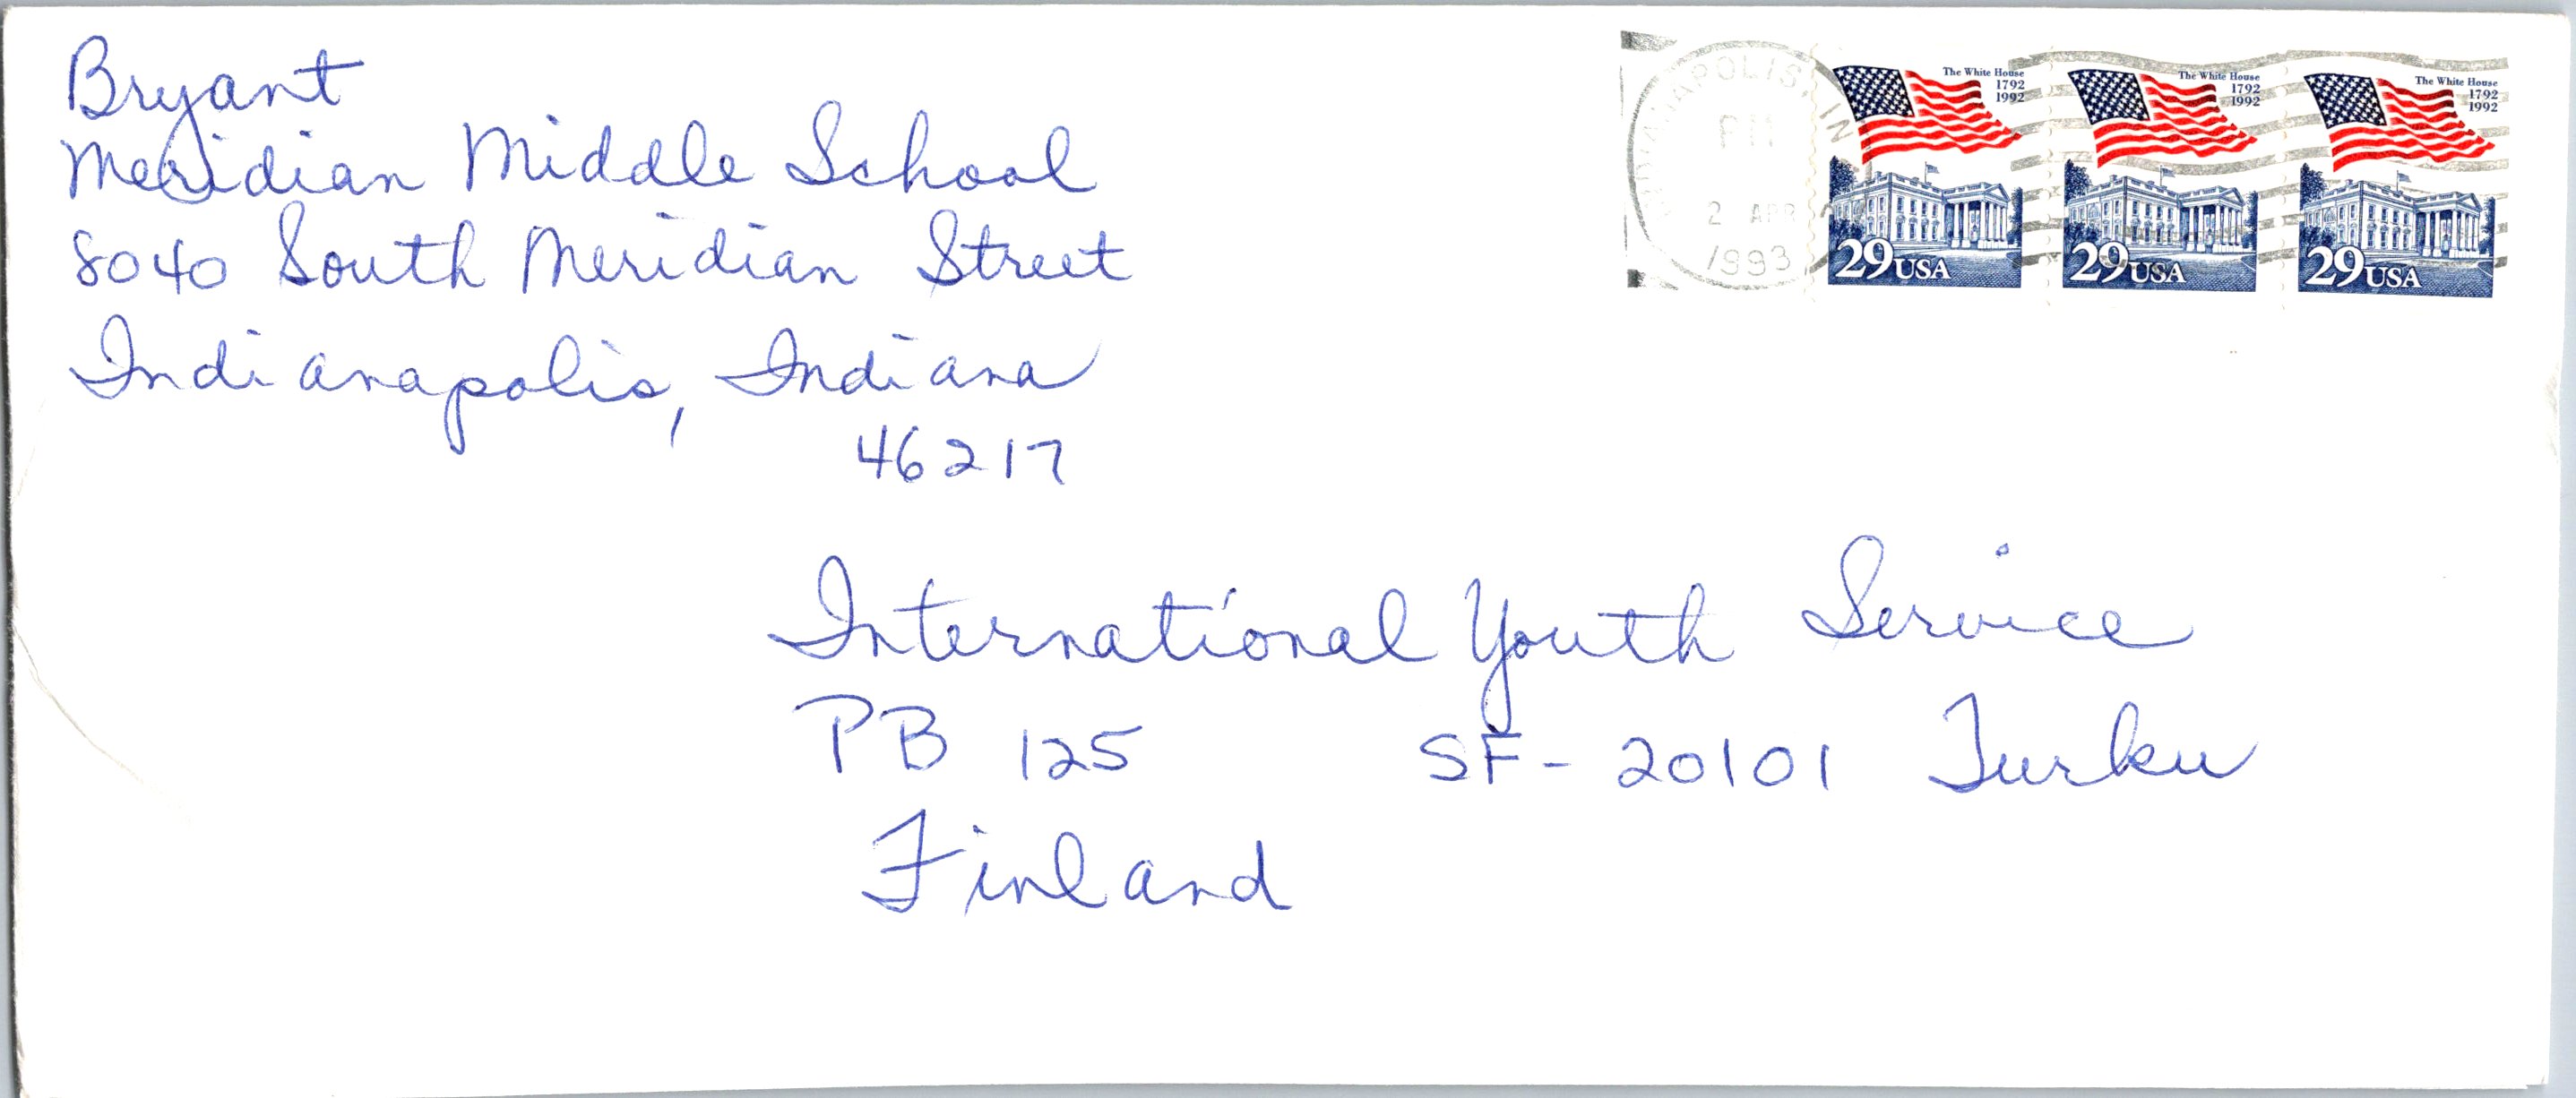 Bryant
Meridian Middle School
8040 South Meridian Street
Indianapolis, Indiana
46217
INDIANAPOLIS, IN
PM
2 APR
1993
The White House
1792
1992
29 USA
The White House
1792
1992
29 USA
The White House
1792
1992
29 USA
International Youth Service
PB 125 SF-20101 Turku
Finland